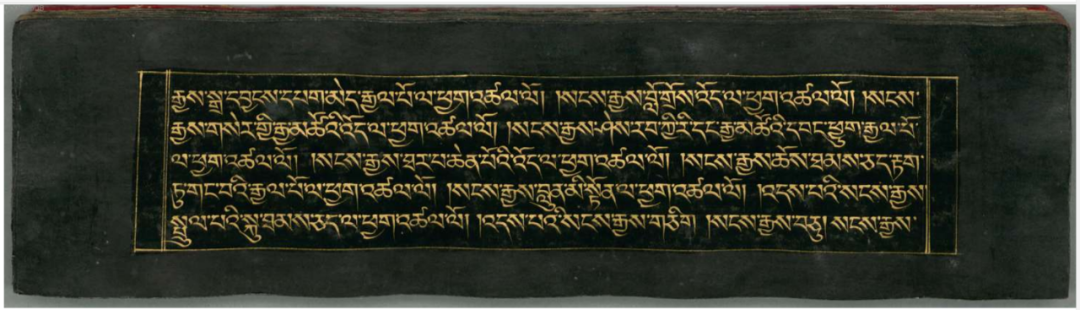 རྒྱས་སྒྲ་དབྱངས་དཔག་མེད་རྒྱལ་པོ་ལ་ཕྱག་འཚལ་ལོ། །སངས་རྒྱས་བློ་གྲོས་འོད་ལ་ཕྱག་འཚལ་ལོ། །སངས་
རྒྱས་གསེར་གྱི་རྒྱ་མཚོའི་འོད་ལ་ཕྱག་འཚལ་ལོ། །སངས་རྒྱས་ཤེས་རབ་ཀྱི་རི་དང་རྒྱ་མཚོའི་དབང་ཕྱུག་རྒྱལ་པོ་
ལ་ཕྱག་འཚལ་ལོ། །སངས་རྒྱས་ཐར་པ་ཆེན་པོའི་འོད་ལ་ཕྱག་འཚལ་ལོ། །སངས་རྒྱས་ཆོས་ཐམས་ཅད་རྟག་
ཏུ་གང་བའི་རྒྱལ་པོ་ལ་ཕྱག་འཚལ་ལོ། །སངས་རྒྱས་བླུན་མི་སྟོན་ལ་ཕྱག་འཚལ་ལོ། །འདས་པའི་སངས་རྒྱས་
སྤྲུལ་པའི་སྐུ་ཐམས་ཅད་ལ་ཕྱག་འཚལ་ལོ། །འདས་པའི་སངས་རྒྱས་གཅིག །སངས་རྒྱས་བཅུ་སངས་རྒྱས་